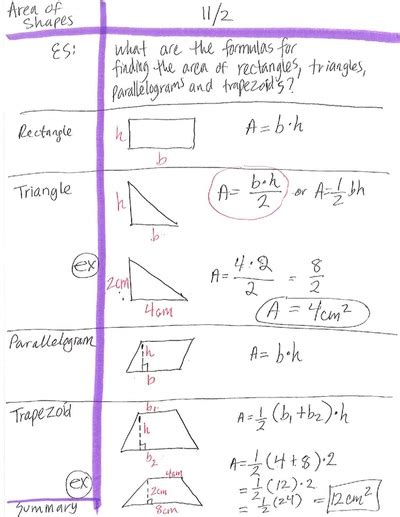 Area of Shapes
11/2
ES:
What are the formulas for
finding the area of rectangles, triangles,
parallelograms and trapezoid's?
Rectangle
h
b
A = b·h
Triangle
h
b
A = b·h/2 or A = 1/2 bh
ex
2cm
4cm
A = 4·2/2 = 8/2
A = 4cm²
Parallelogram
h
b
A = b·h
Trapezoid
b₁
h
b₂
A = 1/2 (b₁ + b₂)·h
ex
4cm
2cm
8cm
A = 1/2 (4+8)·2
= 1/2 (12)·2
= 1/2 (24) = 12cm²
Summary